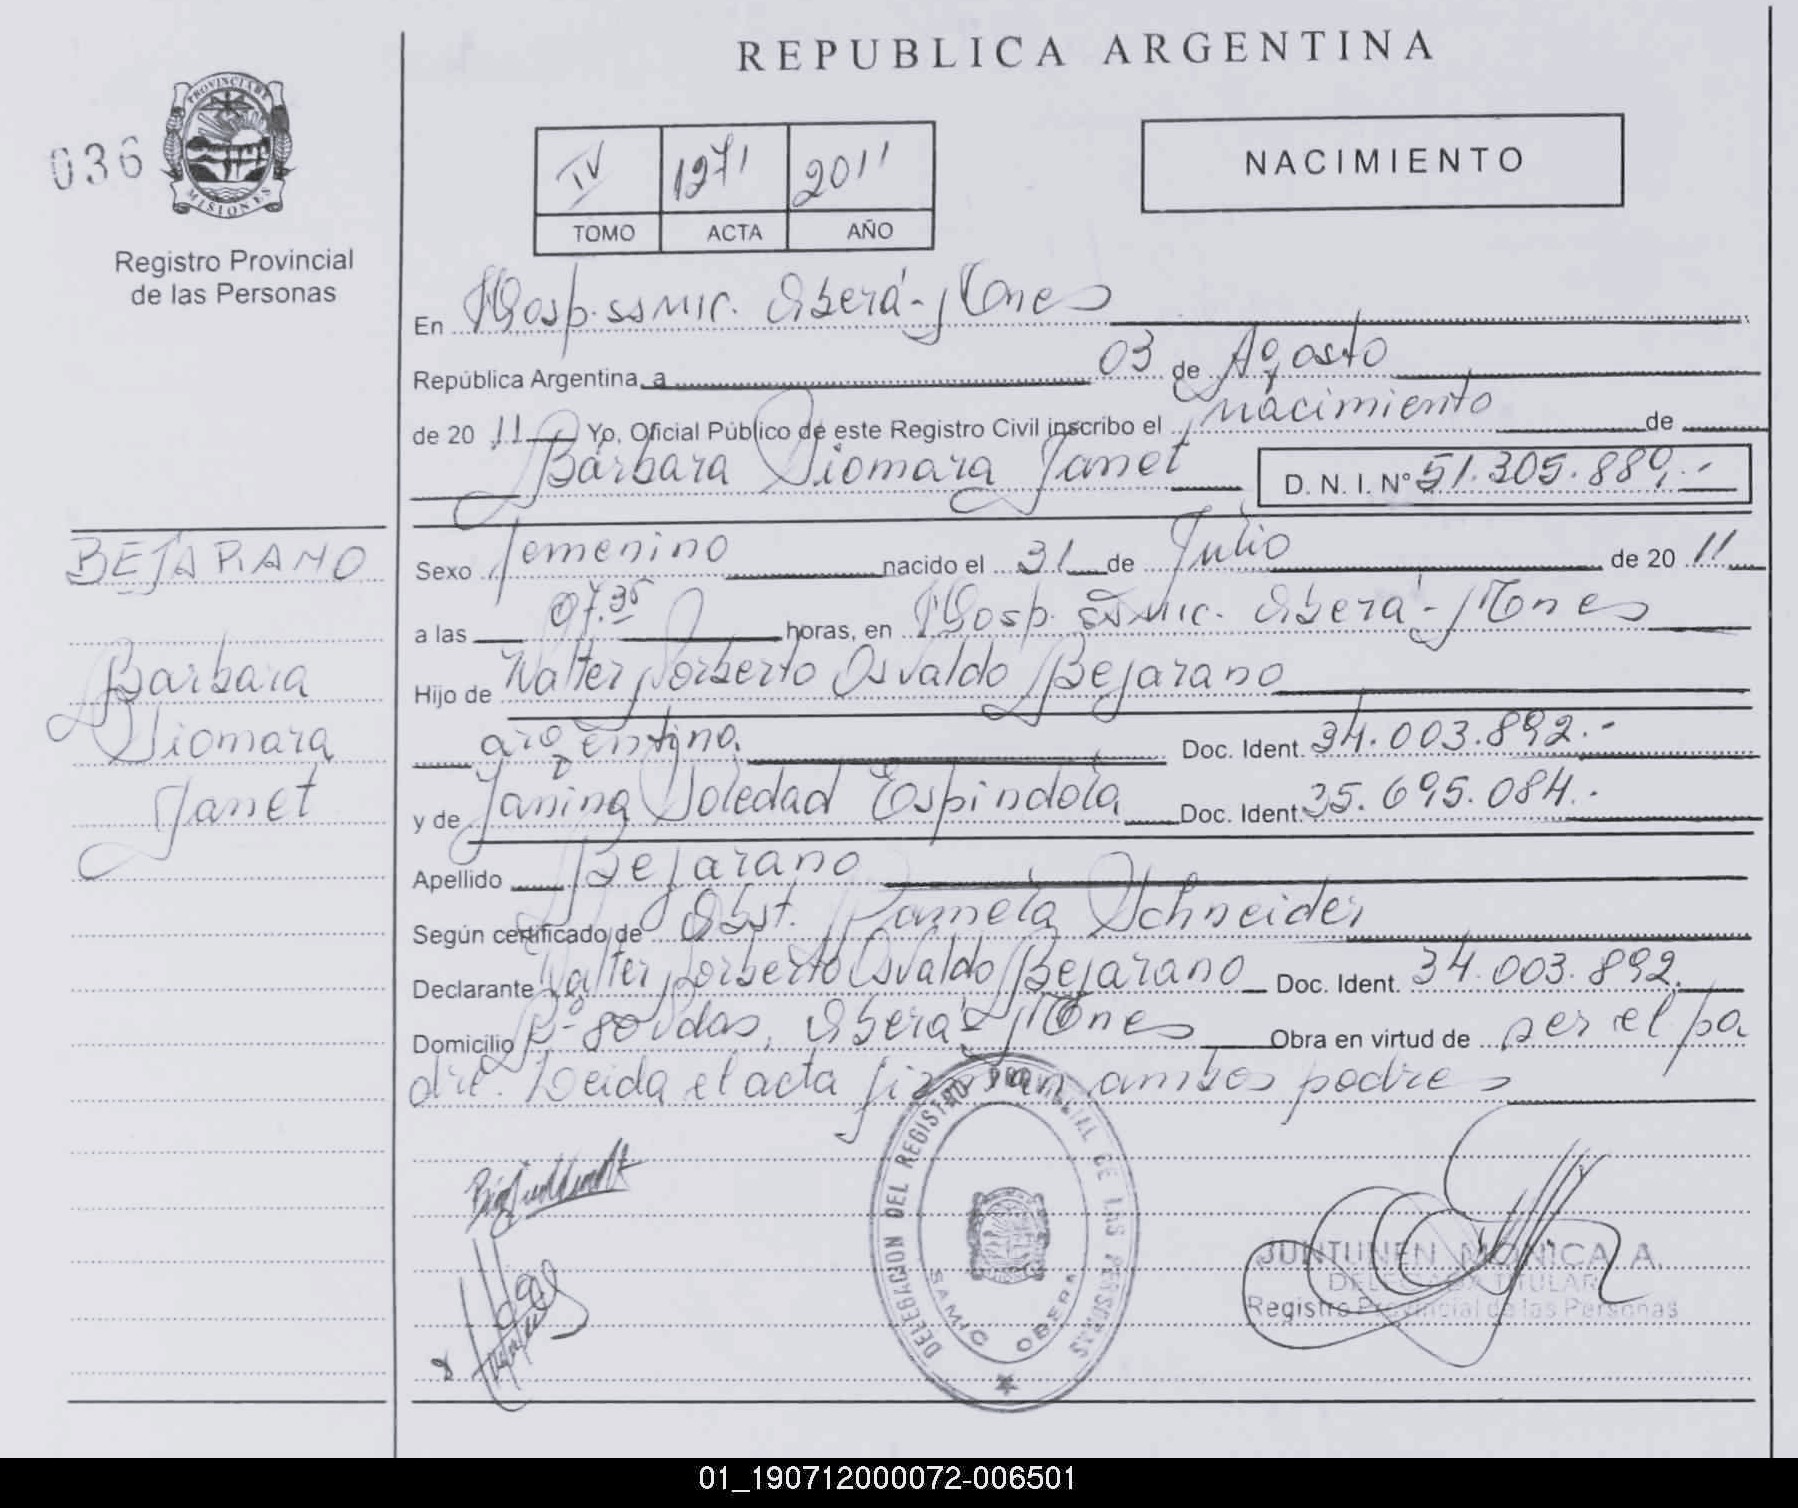 REPUBLICA ARGENTINA
PROVINCIA DE
MISIONES
036
Registro Provincial
de las Personas
IV 1271 2011
TOMO ACTA AÑO
NACIMIENTO
En Hosp. SAMIC. Oberá-Mnes
República Argentina, a 03 de Agosto
de 2011 Yo, Oficial Público de este Registro Civil inscribo el nacimiento de
Bárbara Siomara Janet D. N. I. N° 51.305.889.-
BEJARANO
Bárbara
Siomara
Janet
Sexo femenino nacido el 31 de Julio de 2011
a las 07.35 horas, en Hosp. SAMIC. Oberá-Mnes
Hijo de Walter Norberto Osvaldo Bejarano
argentina. Doc. Ident. 34.003.892.-
y de Janina Soledad Espindola Doc. Ident. 35.695.084.-
Apellido Bejarano
Según certificado de Obst. Pamela Schneider
Declarante Walter Norberto Osvaldo Bejarano Doc. Ident. 34.003.892.
Domicilio Bº 80 Vdas, Oberá-Mnes Obra en virtud de ser el pa
dre. Leida el acta firman ambos padres
DELEGACION DEL REGISTRO PROVINCIAL DE LAS PERSONAS
SAMIC OBERA
JUNTUNEN MONICA A.
DELEGADA TITULAR
Registro Provincial de las Personas
01_190712000072-006501